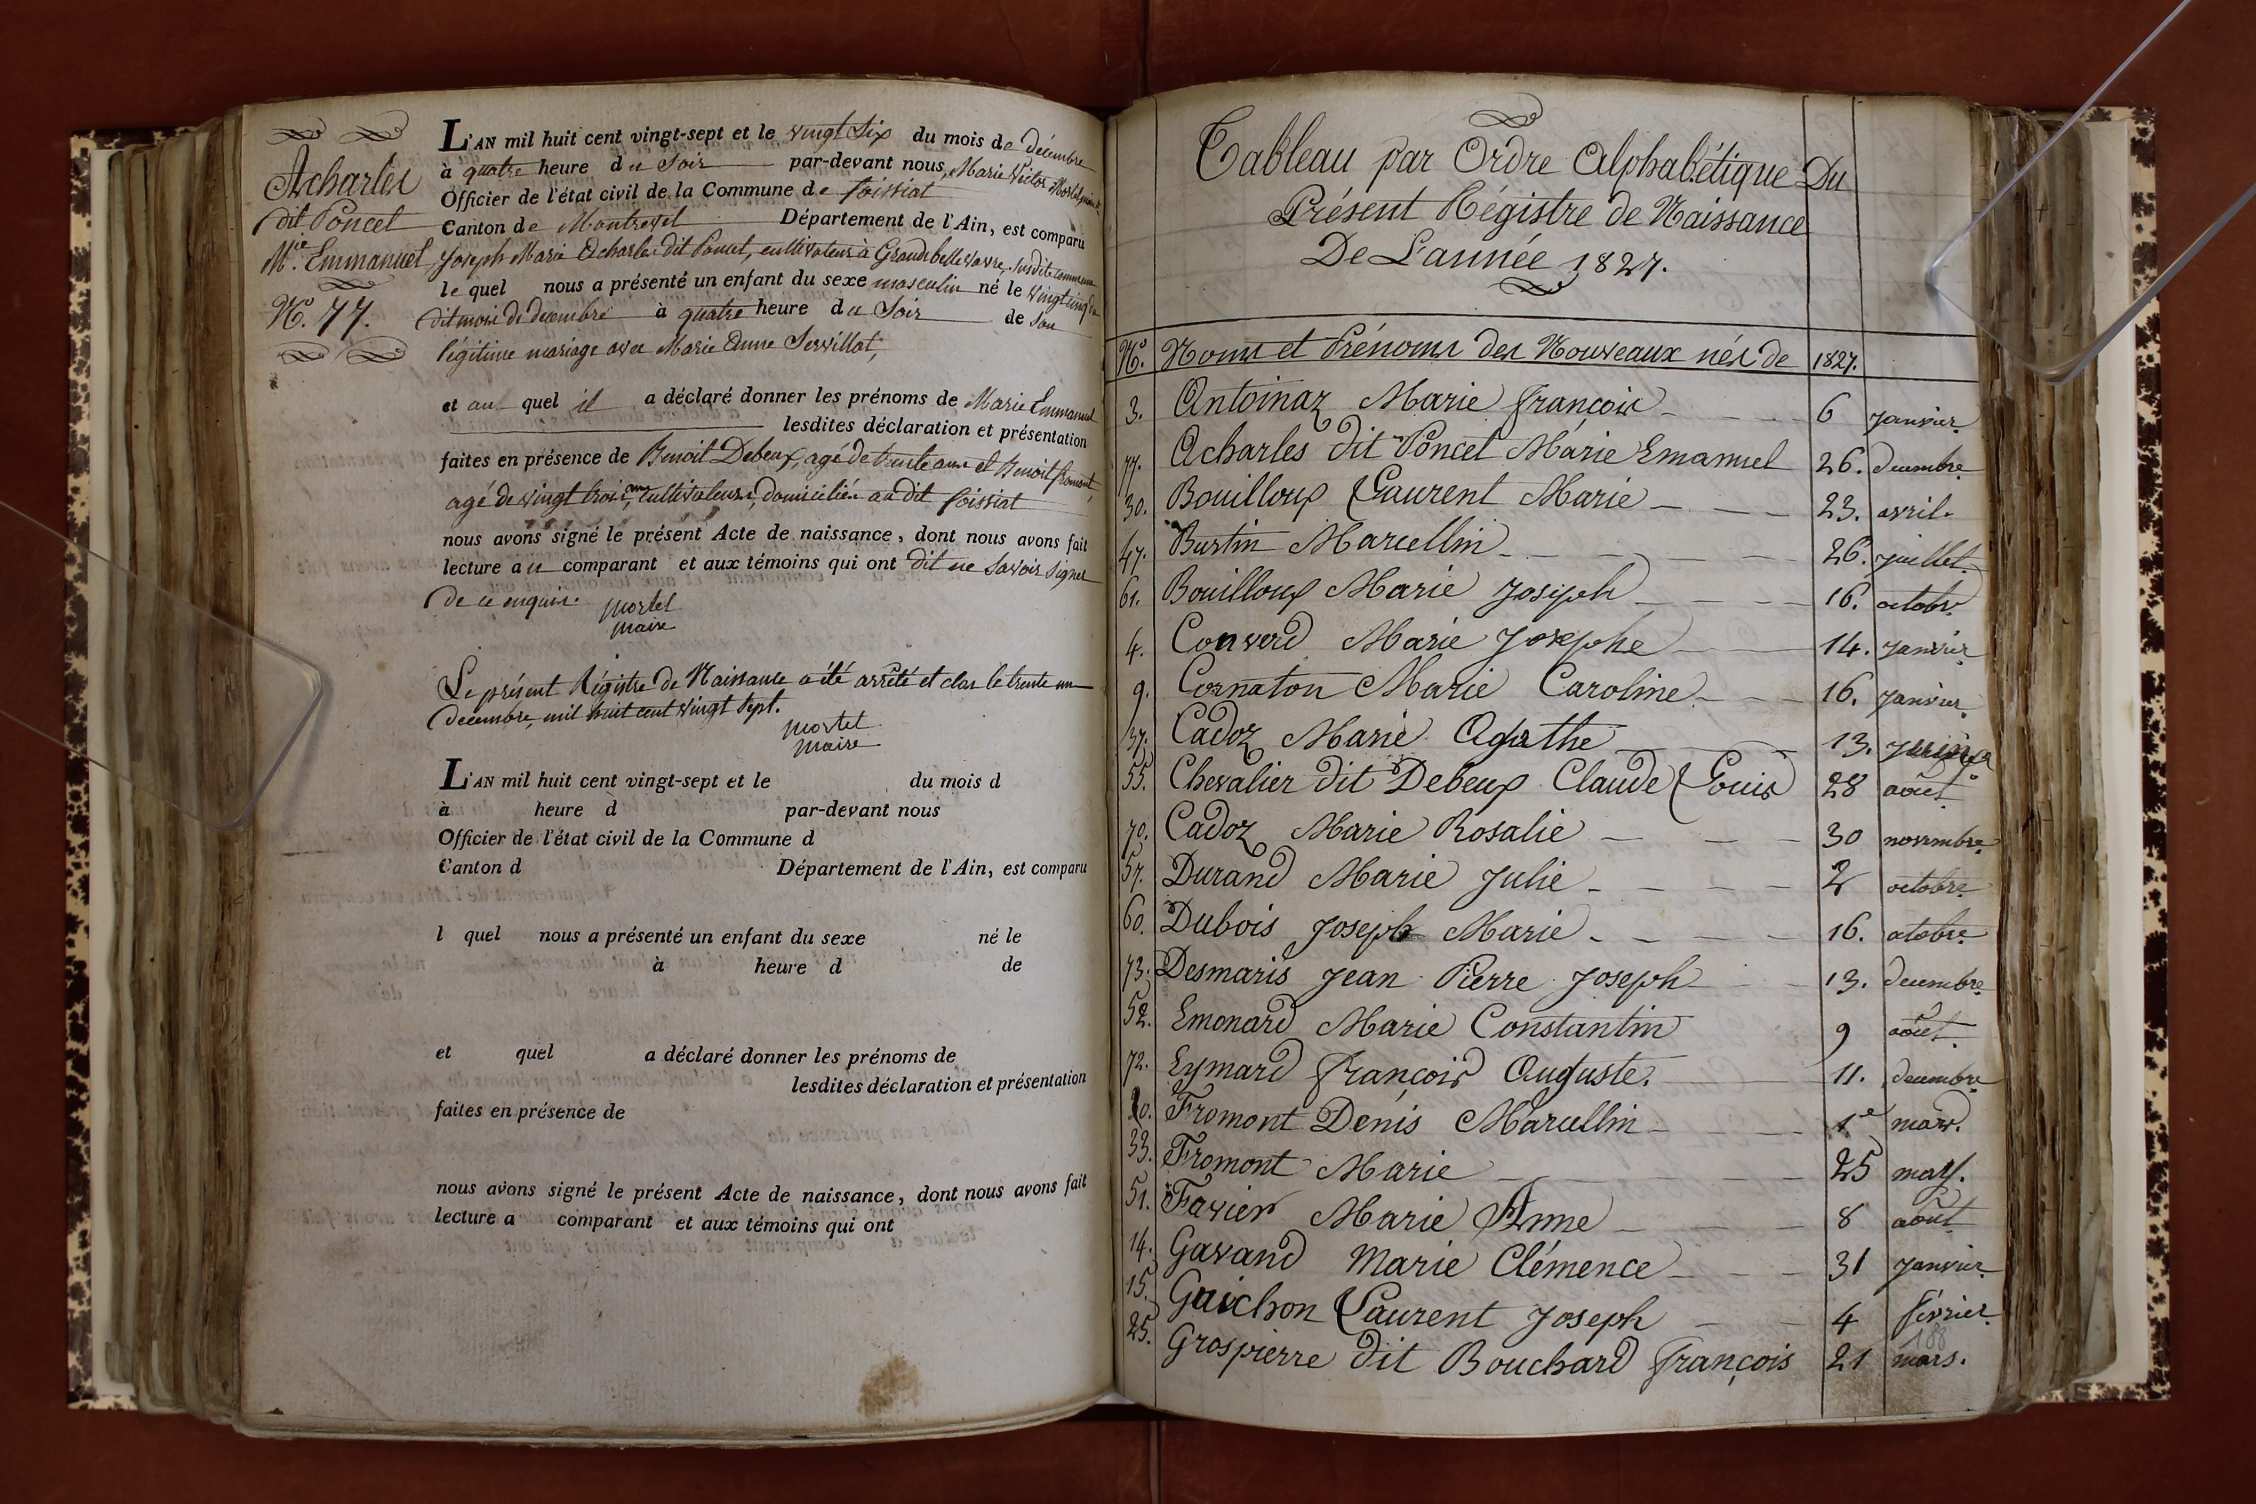 Acharles
dit Poncet
M.ie Emmanuel
N.o 77.
L'AN mil huit cent vingt-sept et le vingt Six du mois de décembre
à quatre heure du Soir par-devant nous, Marie Victor Mortel
Officier de l'état civil de la Commune de foissiat
Canton de Montrevel Département de l'Ain, est comparu
Joseph Marie Acharles dit Poncet, cultivateur à Grandbellevavre, susdite commune
le quel nous a présenté un enfant du sexe masculin né le vingt cinq du
dit mois de décembre à quatre heure du Soir de son
légitime mariage avec Marie Anne Servillat,
et au quel il a déclaré donner les prénoms de Marie Emmanuel
lesdites déclaration et présentation
faites en présence de Benoit Debeux, agé de trente ans et Benoit fromont,
agé de vingt trois ans, cultivateurs, domiciliés au dit foissiat
nous avons signé le présent Acte de naissance, dont nous avons fait
lecture au comparant et aux témoins qui ont dit ne savoir signer
de ce enquis.
mortel
maire
Le présent Régistre de Naissance a été arrêté et clos le trente un
decembre, mil huit cent vingt sept.
mortel
maire
L'AN mil huit cent vingt-sept et le du mois d
à heure d par-devant nous
Officier de l'état civil de la Commune d
Canton d Département de l'Ain, est comparu
l quel nous a présenté un enfant du sexe né le
à heure d de
et quel a déclaré donner les prénoms de
lesdites déclaration et présentation
faites en présence de
nous avons signé le présent Acte de naissance, dont nous avons fait
lecture a comparant et aux témoins qui ont
Tableau par Ordre Alphabétique Du
Présent Régistre de Naissance
De L'année 1827.
N.o Noms et Prénoms des Nouveaux nés de 1827.
3. Antoinaz Marie françois 6 janvier
77. Acharles dit Poncet Marie Emanuel 26. decembre
30. Bouilloux Laurent Marie 23. avril.
47. Burtin Marcellin 26. juillet.
61. Bouilloux Marie Joseph 16. octobre
4. Converd Marie Josephe 14. janvier
9. Cornaton Marie Caroline 16. janvier
37. Cadoz Marie Agathe 13.
55. Chevalier dit Debeux Claude Louis 28 août
70. Cadoz Marie Rosalie 30 novembre
57. Durand Marie Julie 2 octobre
60. Dubois Joseph Marie 16. octobre
73. Desmaris Jean Pierre Joseph 13. decembre
52. Emonard Marie Constantin 9 août
72. Eymard françois Auguste. 11. decembre
20. Fromont Denis Marcellin 1e mars.
33. Fromont Marie 25 may.
51. Favier Marie Anne 8 août
14. Gavand Marie Clémence 31 janvier
15. Guichon Laurent Joseph 4 février
188
25. Grospierre dit Bouchard françois 21 mars.